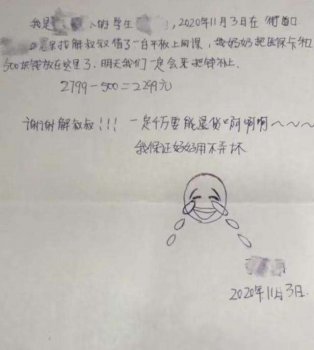 我是 的学生 , 2020年11月3日在
找解叔叔借了一台平板上网课，我奶奶把医保卡和
500块钱放在这里了. 明天我们一定会来把钱补上.
2799-500=2299元
谢谢解叔叔!!! 一定千万要能退货啊啊啊~~~~
我保证好好用不弄坏
2020年11月3日.